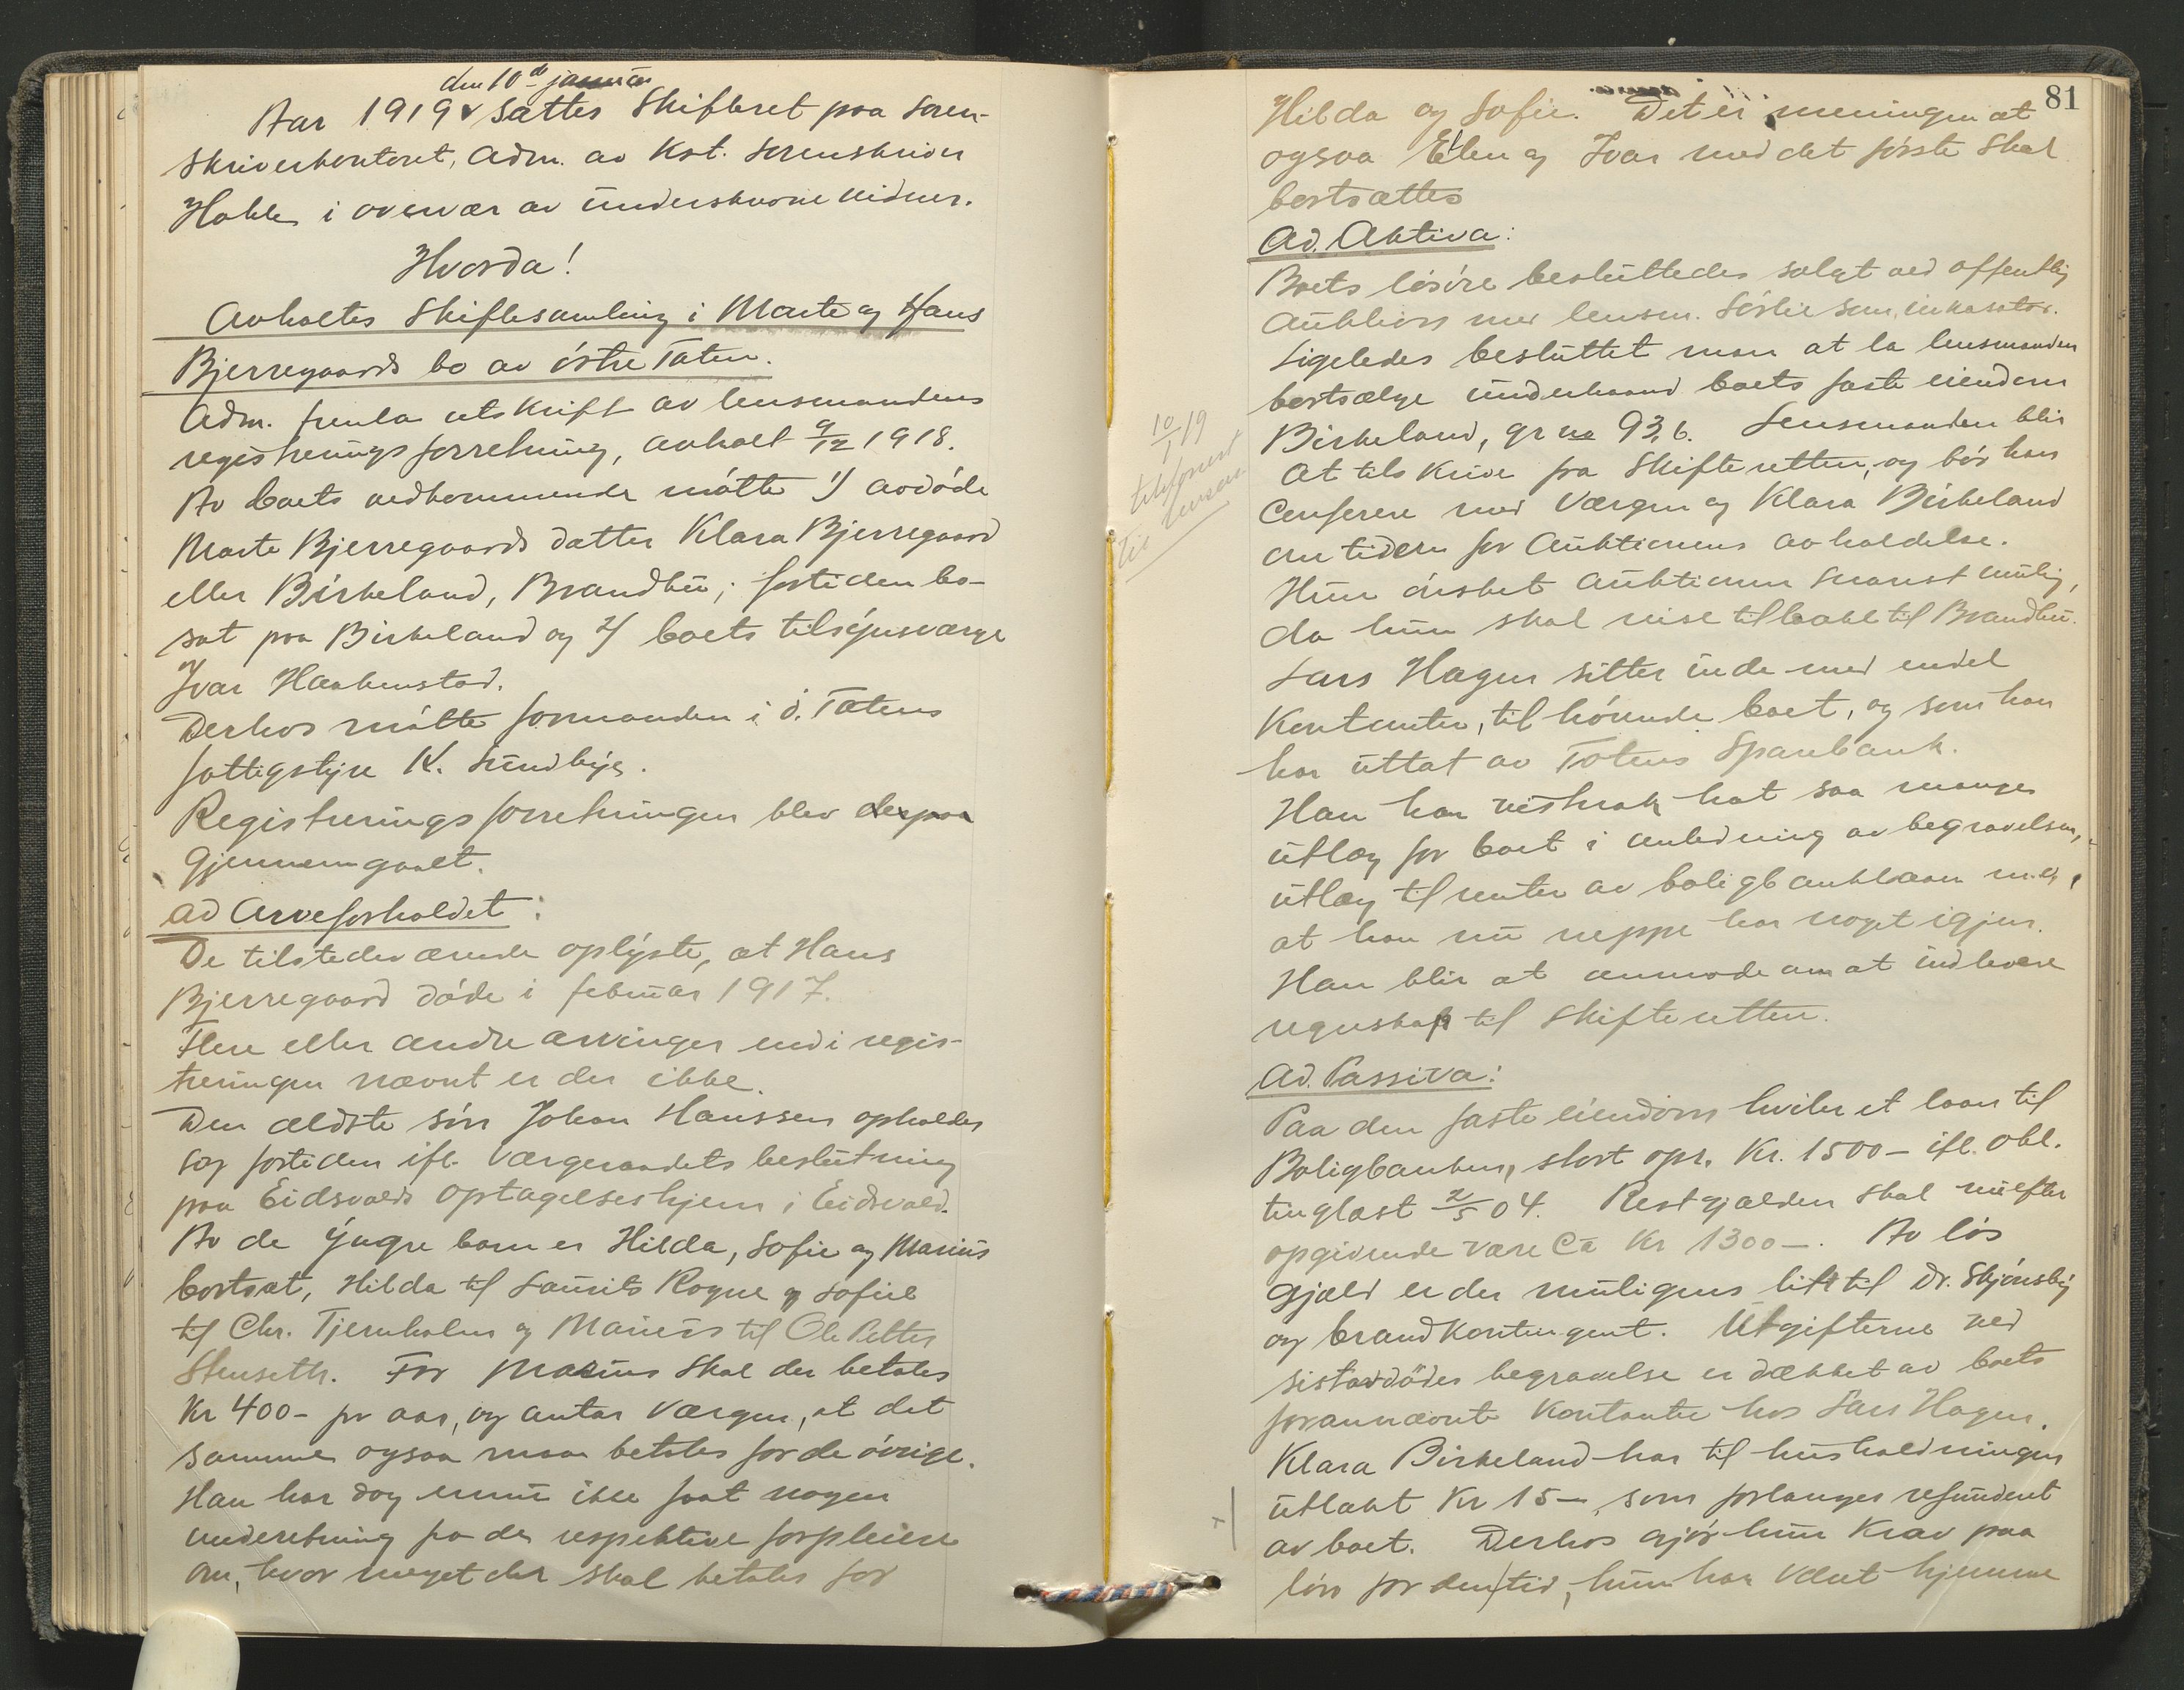 den 10de januar
Aar 1919 v sattes Skifteret paa Soren-
skriverkontoret, adm. av Kst. sorenskriver
Holth, i overvær av underskrevne vidner.
Hvorda!
Avholtes Skiftesamling i Marte og Hans
Bjerregaards bo av östre Toten.
Adm. fremla utskrift av lensmandens
registreringsforretning, avholt 9/12 1918.
Av boets vedkommende mötte 1) avdöde
Marte Bjerregaards datter Klara Bjerregaard
eller Birkeland, Brandbu, fortiden bo-
sat paa Birkeland og 2) boets tilsynsværge
Ivar Haakenstad.
Derhos mötte formanden i ö. Totens
fattigstyre K. Sundby.
Registreringsforretningen blev derpaa
gjennemgaaet.
ad Arveforholdet:
De tilstedeværende oplyste, at Hans
Bjerregaard döde i februar 1917.
Flere eller andre arvinger end i regis-
treringen nævnt er der ikke.
Den ældste sön Johan Hanssen opholder
sig fortiden ifl. Værgeraadets beslutning
paa Eidsvolds Optagelseshjem i Eidsvold.
Av de yngre barn er Hilda, Sofie og Marius
bortsat, Hilda til Laurits Rogne og Sofie
til Chr. Tjernholm og Marius til Ole Petter
Stenseth. For Marius skal der betales
Kr 400- pr aar, og antar Værgen, at det
samme ogsaa maa betales for de övrige.
Han har dog ennu ikke faat nogen
underretning fra de respektive forpleiere
om, hvor meget der skal betales for
81
Hilda og Sofie. Det er meningen at
ogsaa Ellen og Ivar med det förste skal
bortsættes
Ad. Aktiva:
Boets lösöre besluttedes solgt ved offentlig
Auktion med lensm. Sörlie som inkasator.
Ligeledes besluttet man at la lensmanden
bortsælge underhaand boets faste eiendom
Birkeland, gr no 93,6. Lensmanden blir
at tilskrive fra Skifteretten, og bör han
conferere med Værgen og Klara Birkeland
om tiden for Auktionens avholdelse.
Hun önsket auktionen snarest mulig,
da hun skal reise tilbake til Brandbu.
Lars Hagen sitter inde med endel
Kontanter, tilhörende boet, og som han
har uttat av Totens Sparebank.
Han har vistnok hat saa mange
utlæg for boet i anledning av begravelsen,
utlæg til renter av boligbanklaan m.v.,
at han nu neppe har noget igjen.
Han blir at anmode om at indlevere
regnskap til Skifteretten.
10/1 19
telefonert
til lensm.
Ad. Passiva:
Paa den faste eiendom hviler et laan til
Boligbanken, stort opr. Kr. 1500- ifl. obl.
tinglæst 2/5 04. Restgjælden skal nu efter
opgivende være Ca Kr 1300-. Av lös
gjæld er der muligens litt til Dr. Skjönsby
og brandkontingent. Utgifterne ved
sistavdödes begravelse er dækket av boets
forannævnte Kontanter hos Lars Hagen.
Klara Birkeland har til husholdningen
utlakt Kr 15-, som forlanges refunderet
av boet. Derhos gjör hun Krav paa
lön for den tid, hun har været hjemme